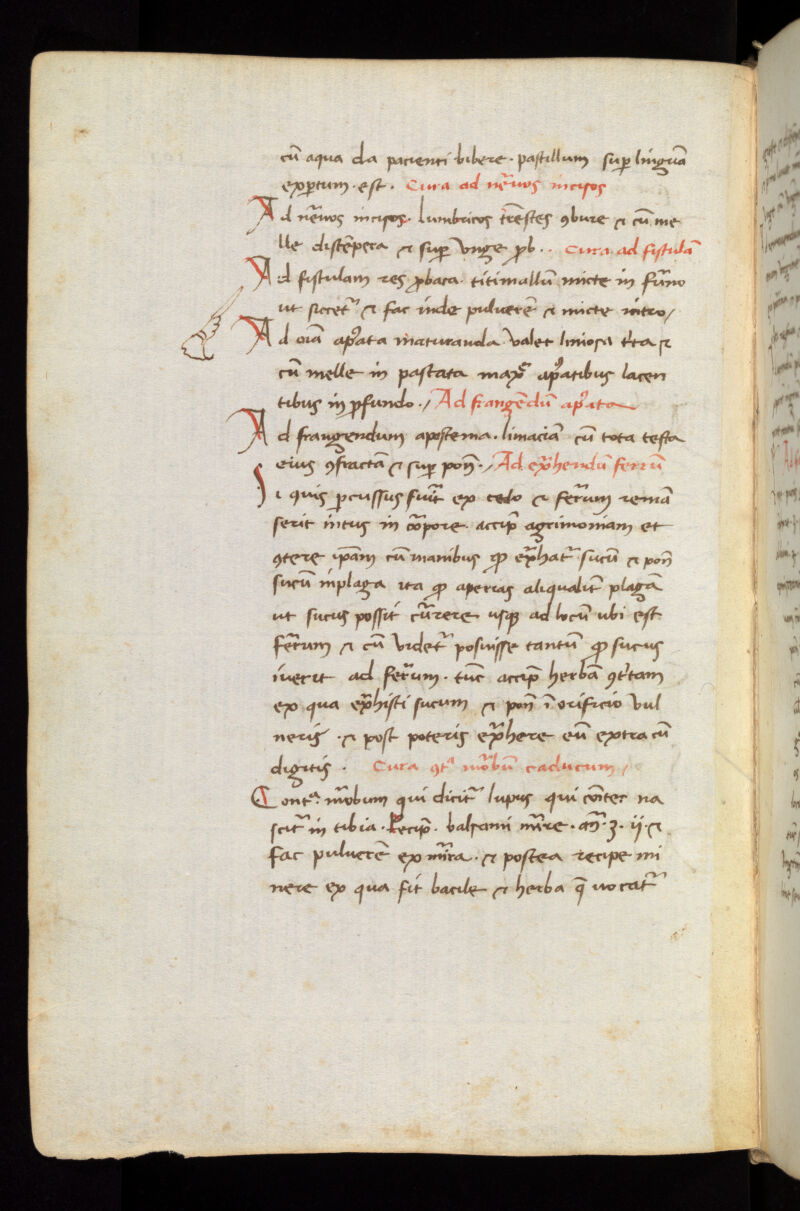 cū aqua da pacienti bibere · pastillum suꝑ linguā
exꝑtum · est · Cura ad neruos incisos
Ad neruos incisos · lumbricos tr̄estes ꝯbure ⁊ cū me
lle distēpera ⁊ suꝑ vnge ꝓb · · Cura ad fistulā
Ad fistulam res ꝓbata titimallū micte in furno
ut siccet᷑ ⁊ fac inde puluerē ⁊ micte intro /
Ad oīa apᷣata maturanda valet limosa
cū melle in pastata apᷣatibus iacen
tibus in ꝓfundo · / Ad frangendū apᷣata
Ad frangendum apostema · limaciā cū tota testa
eius ꝯfractā ⁊ suꝑ pon̄ · / Ad ext᷑hendū ferrū
Si quis ꝑcussus fuīt ex telo ⁊ ferrum remā
serit intus in corpore accip̄ agrimoniam et
ꝯtere ip̄am cū manibus ext᷑hat᷑ sucū ⁊ pon̄
sucū inplaga ita aperias aliqualit̄ plagā
ut sucus possit currere usqꝫ ad locū ubi est
ferrum ⁊ cū videt᷑ posuisse tantū sucus
iuerit ad ferrum · tūc accip̄ herbā ꝯt᷑tam
ex qua ext᷑histi sucum ⁊ pon̄ ī orificio vul
neris · ⁊ post poteris ext᷑here eū extra cū
digitis · Cura ꝯt᷑ morbū caducum /
Cont᷑ morbum qui dicit᷑ lupus qui na
scit᷑ in tibia · Recip̄ · balsami mirre · an̄ · ʒ · ij · ⁊
fac puluerē ex mirra · ⁊ postea recipe mi
nere ex qua fit bacile ⁊ herba q̄ uocat᷑